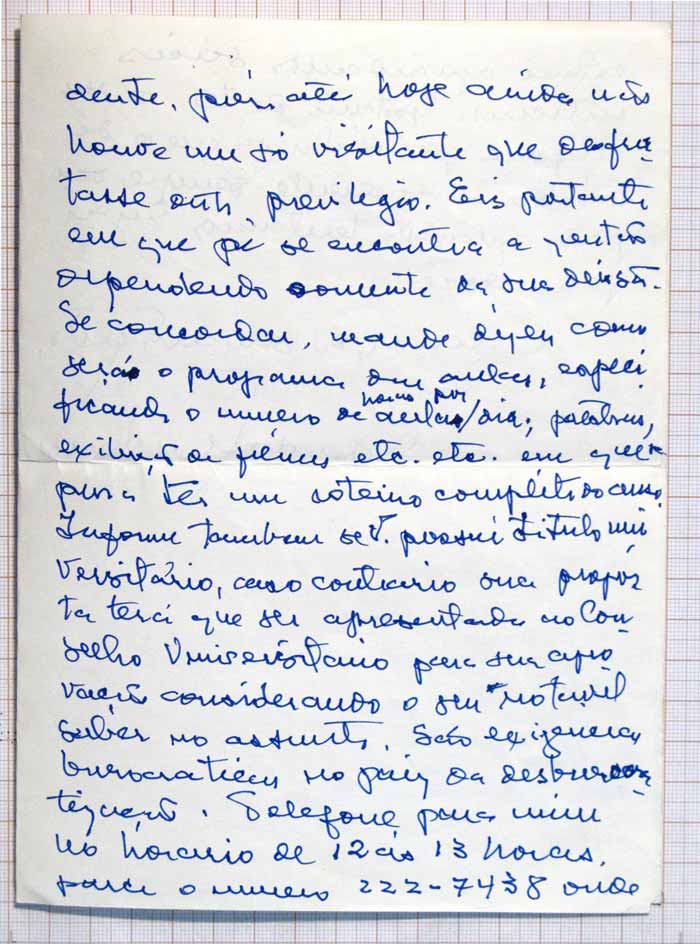 dente, porém até hoje ainda não
houve um só visitante que desfru
tasse este previlegio. Eis portanto
em que pé se encontra a questão
dependendo somente da sua decisão.
Se concordar, mande dizer como
será o programa das aulas, especi
ficando o numero de horas por aulas/dia, palestras,
exibição de filmes etc. etc. em que
para ter um roteiro completo do curso.
Informe tambem se V. possui titulo uni
versitário, caso contrario sua propos
ta terá que ser apresentada ao Con
selho Universitario para sua apro
vação considerando o seu "notavel
saber no assunto. São exigencias
burocraticas no país da desburocra
tização. Telefone para mim
no horario de 12 às 13 horas.
para o numero 222-7438 onde